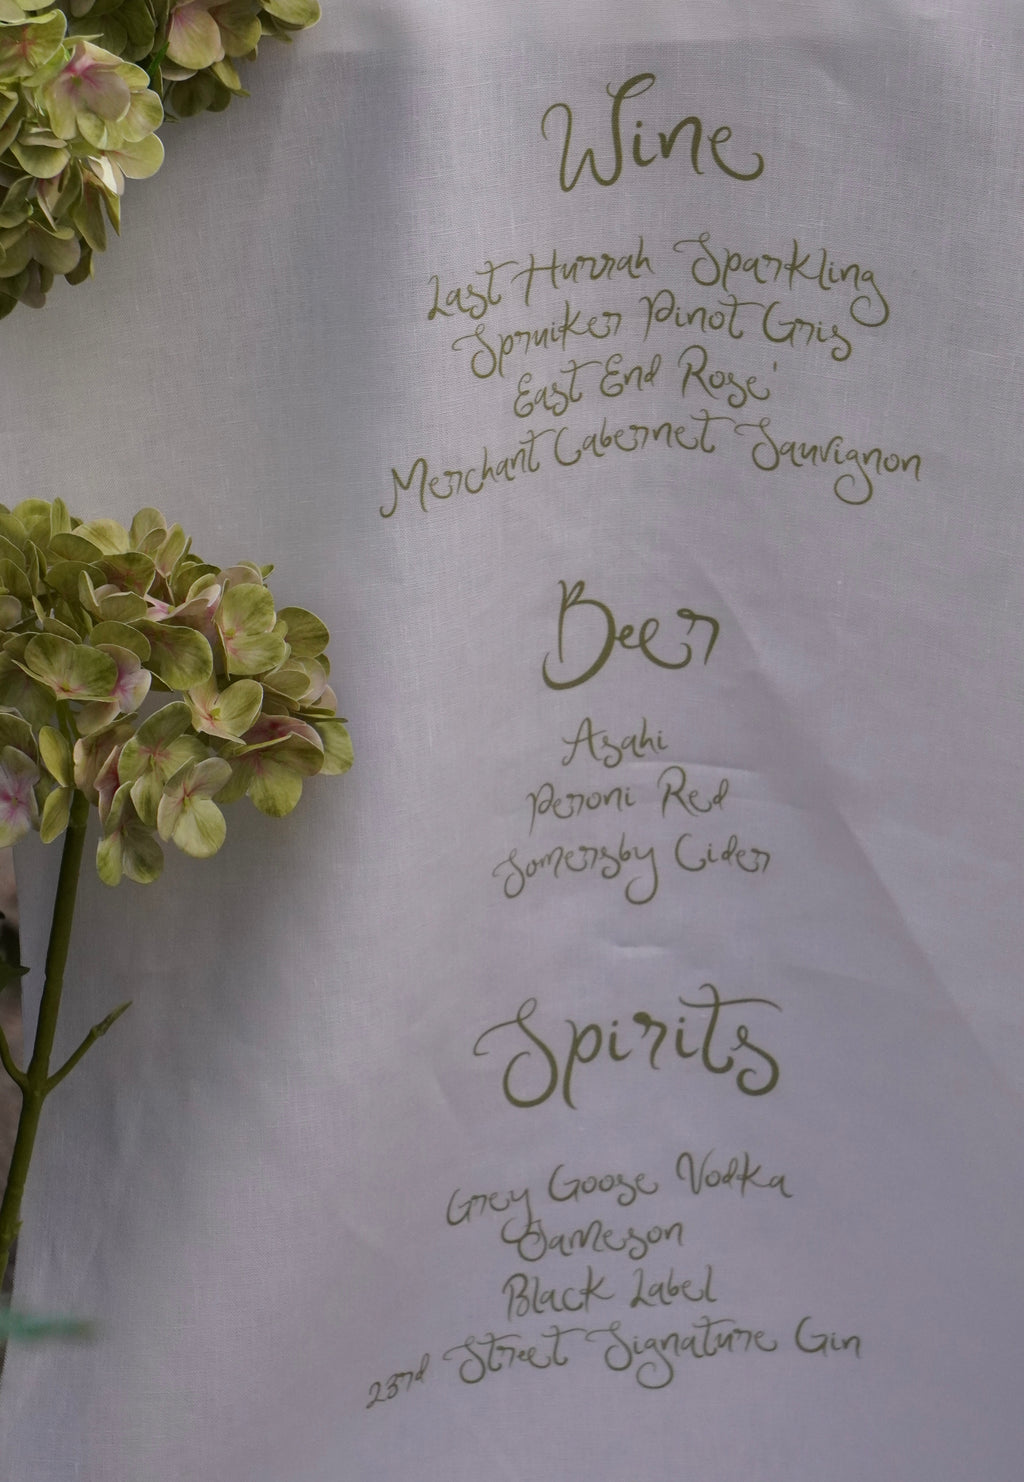 Wine
Last Hurrah Sparkling
Spruiker Pinot Gris
East End Rose'
Merchant Cabernet Sauvignon
Beer
Asahi
Peroni Red
Somersby Cider
Spirits
Grey Goose Vodka
Jameson
Black Label
23rd Street Signature Gin